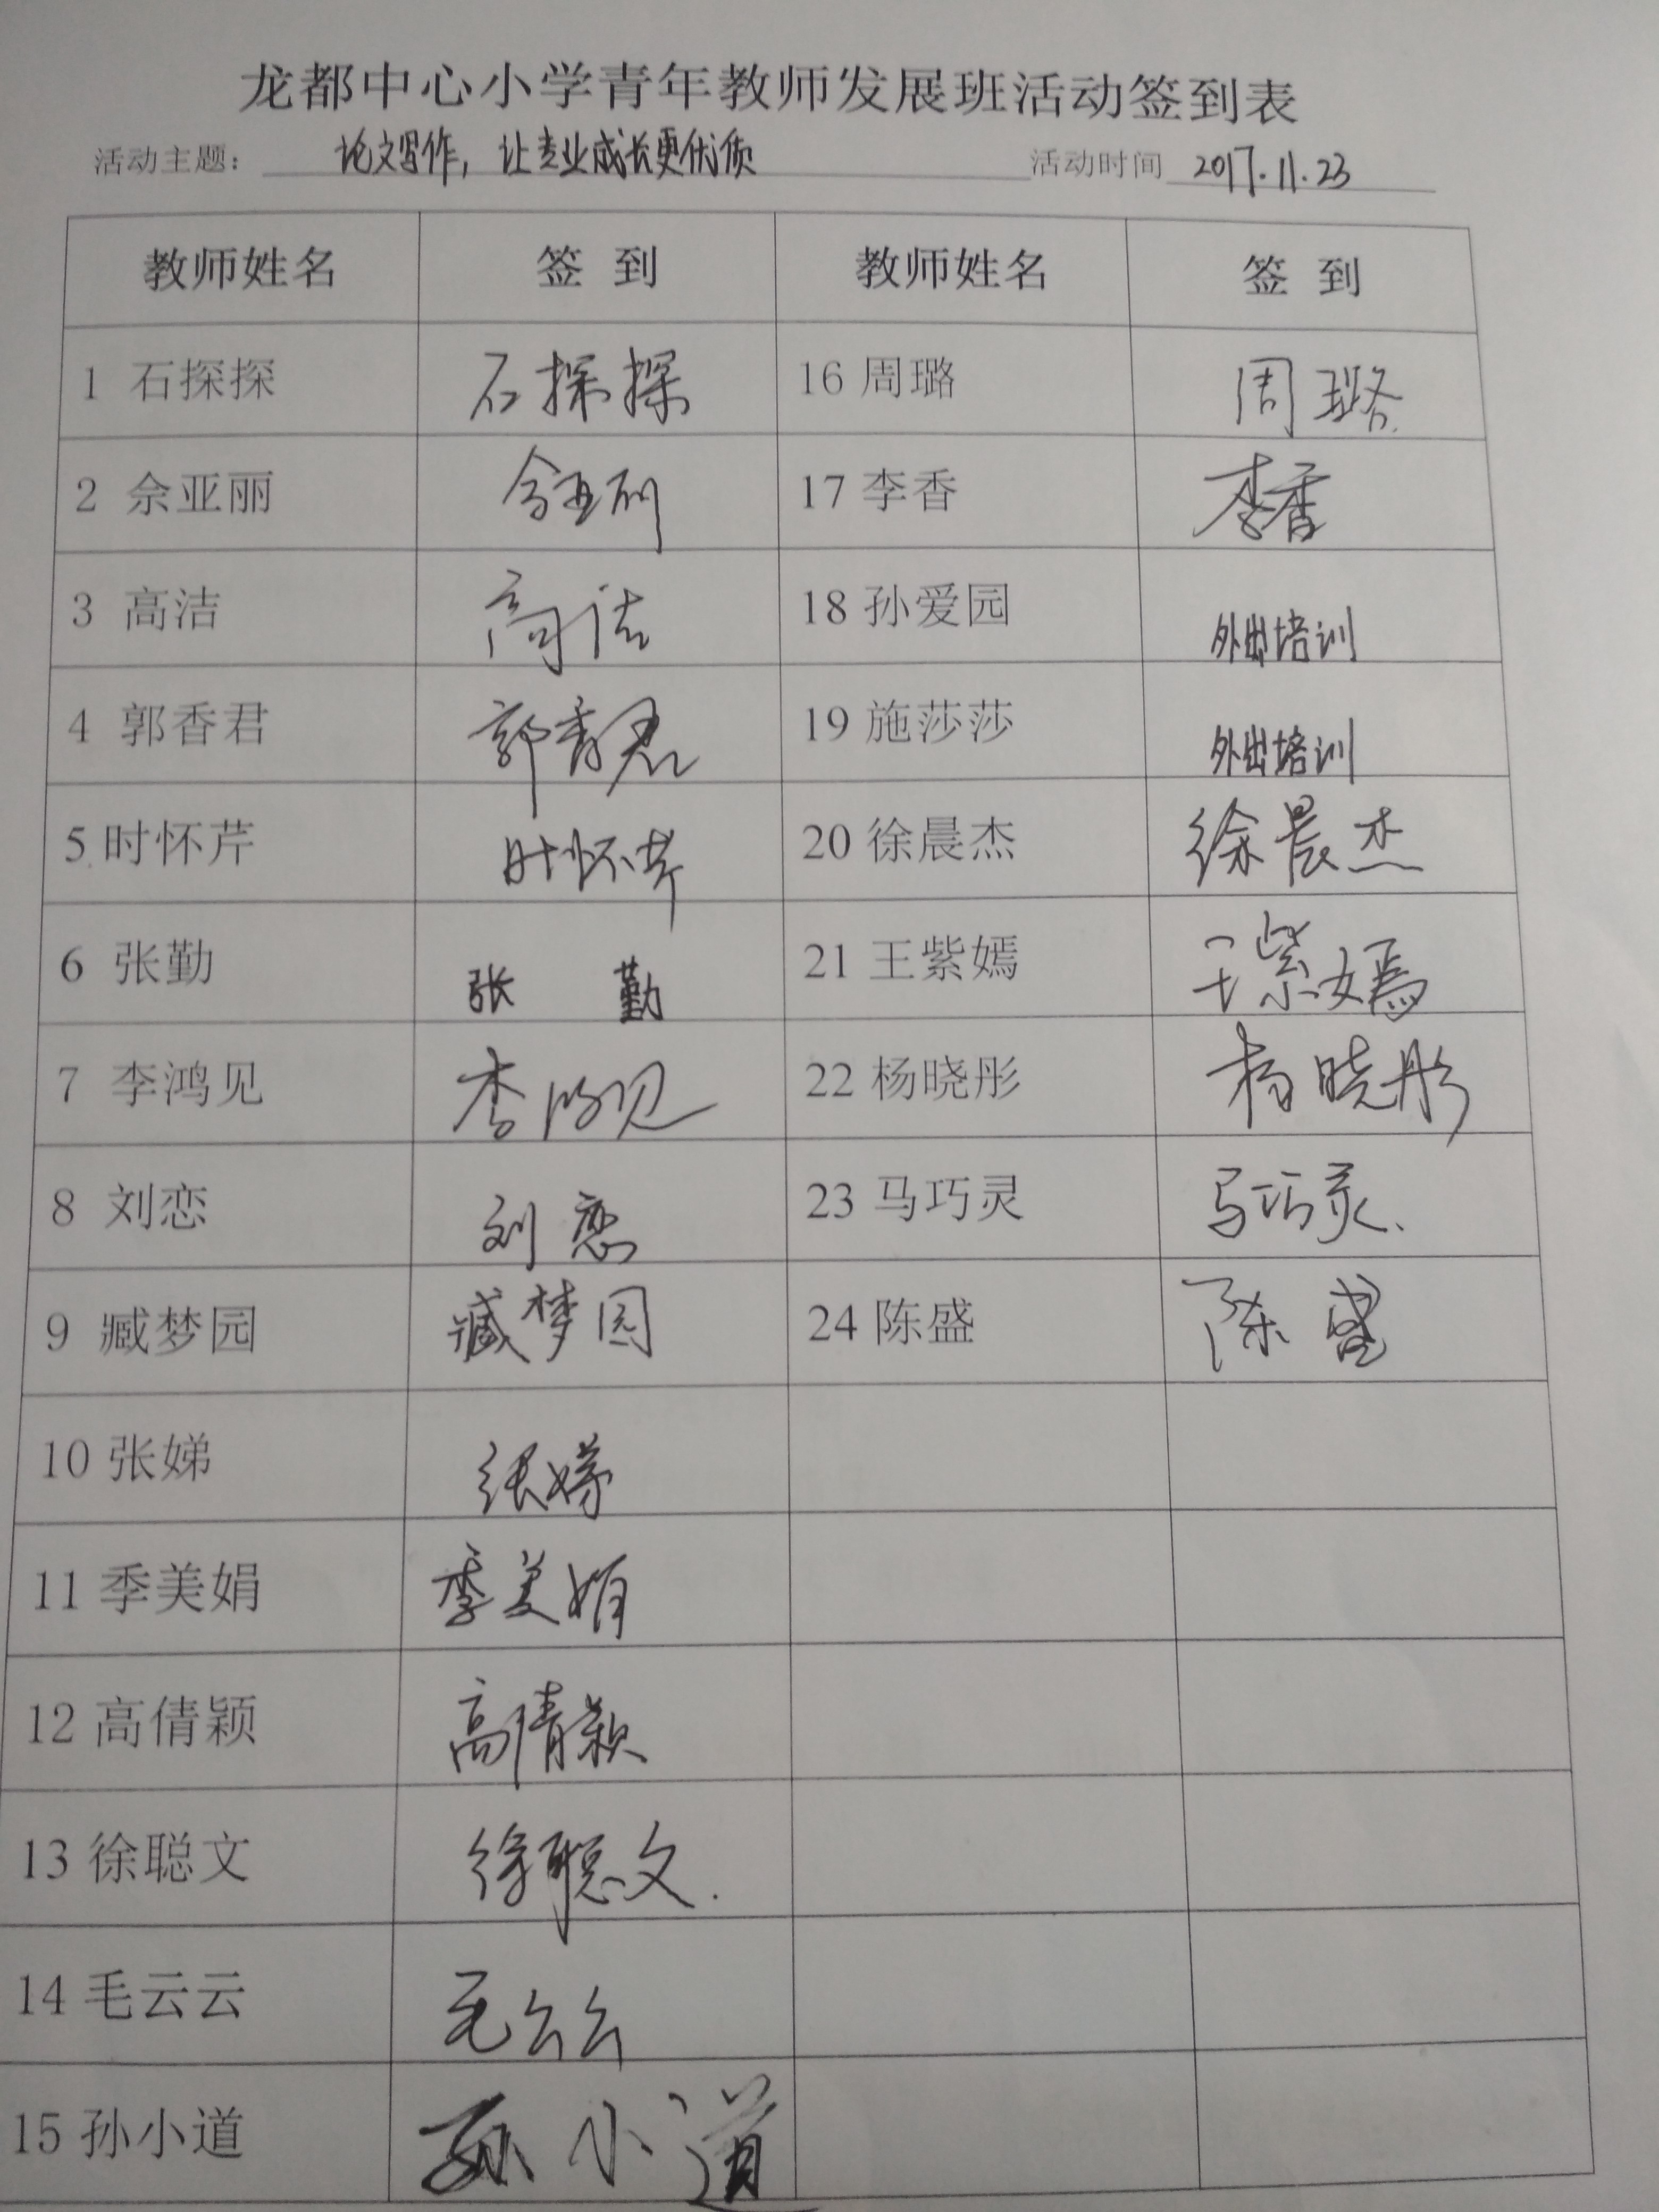 龙都中心小学青年教师发展班活动签到表
活动主题： 论文写作，让专业成长更优质 活动时间 2017.11.23
教师姓名 签 到 教师姓名 签 到
1 石探探 石探探 16 周璐 周璐
2 佘亚丽 佘亚丽 17 李香 李香
3 高洁 高洁 18 孙爱园 外出培训
4 郭香君 郭香君 19 施莎莎 外出培训
5 时怀芹 时怀芹 20 徐晨杰 徐晨杰
6 张勤 张 勤 21 王紫嫣 王紫嫣
7 李鸿见 李鸿见 22 杨晓彤 杨晓彤
8 刘恋 刘恋 23 马巧灵 马巧灵.
9 臧梦园 臧梦园 24 陈盛 陈盛
10 张娣 张娣
11 季美娟 季美娟
12 高倩颖 高倩颖
13 徐聪文 徐聪文.
14 毛云云 毛云云
15 孙小道 孙小道